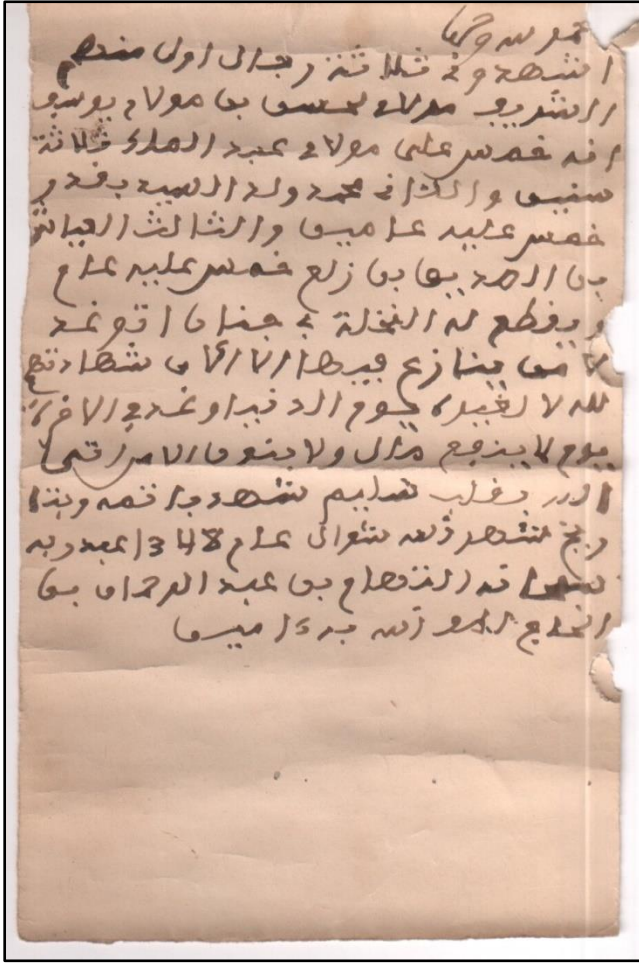 الحمد لله وحده
اشهدوني ثلاثة رجال اولى منهم
الشريف مولاي لحسن بن مولاي يوسف
انه خمس على مولاي عبد الملك ثلاثة
سنين والثاني محمد ولد السيد بفدور
خمس عليه عامين والثالث العياشي
بن الصديق بن زلع خمس عليه عام
ويقطع له النخلة في جنان
لا من ينازع فيها الا الان شهادتهم
لله لا لغيره يوم الدنيا وغدي الاخرة
يوم لا ينفع مال ولا بنون الا من اتى
الله بقلب سليم شهد به اتمه وبتا
ريخ شهر الله شوال عام 1348 عبد ربه
التهام بن عبد الرحمان بن
الحاج الله به ءامين